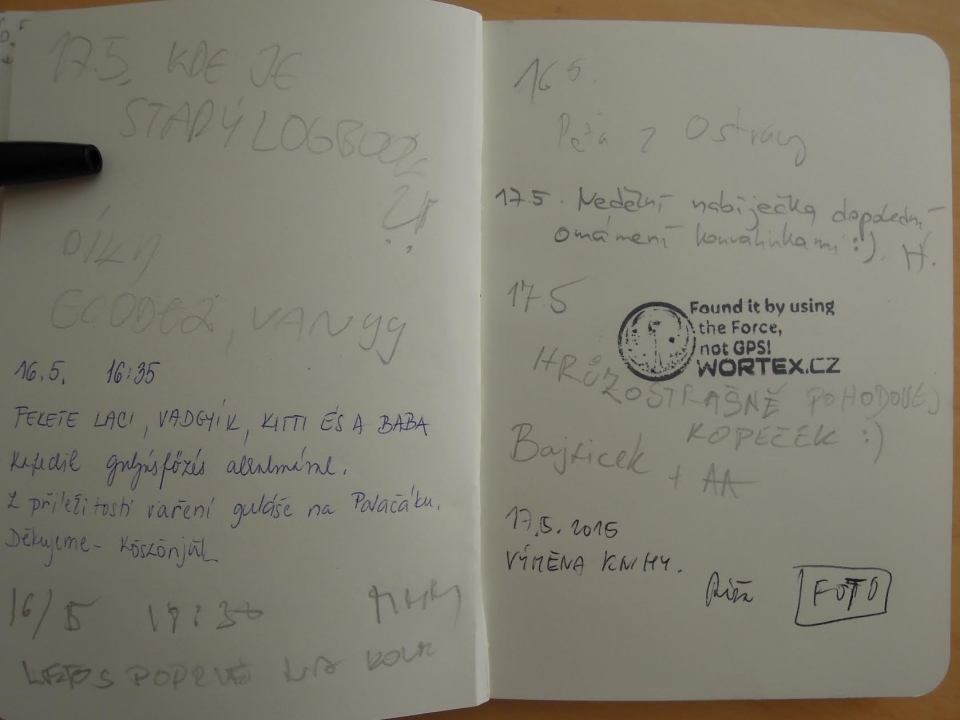 17.5, KDE JE
STARÝ LOGBOOK
?!
DÍKY
VANYY
16.5. 16:35
FEKETE LACI, VADGYIK, KITTI ÉS A BABA
Z příležitosti vaření guláše na Palačáku.
Děkujeme - Köszönjük
16/5 17:30
LETOS POPRVÉ NA KOLE
16 5.
Péťa z Ostravy
17.5. Nedělní nabíječka dopolední
omámení konvalinkami :). H.
17.5
Found it by using
the Force,
not GPS!
WORTEX.CZ
HRŮZOSTRAŠNĚ POHODOVEJ
KOPEČEK :)
Bajticek + AA
17.5.2015
VÝMĚNA KNIHY.
FOTO